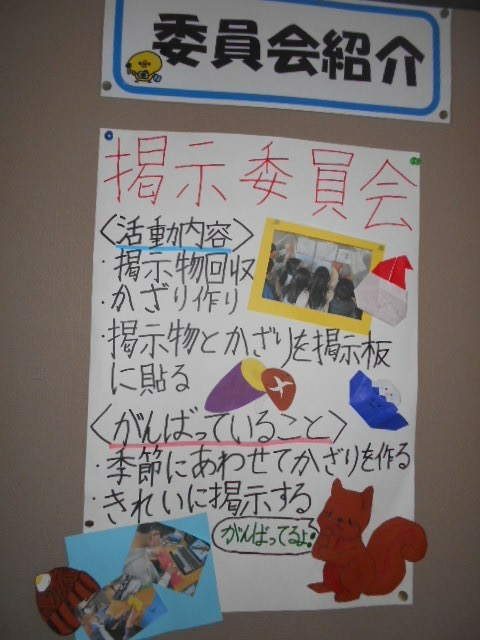 委員会紹介
掲示委員会
〈活動内容〉
・掲示物回収
・かざり作り
・掲示物とかざりを掲示板
に貼る
〈がんばっていること〉
・季節にあわせてかざりを作る
・きれいに掲示する
がんばってるよ!